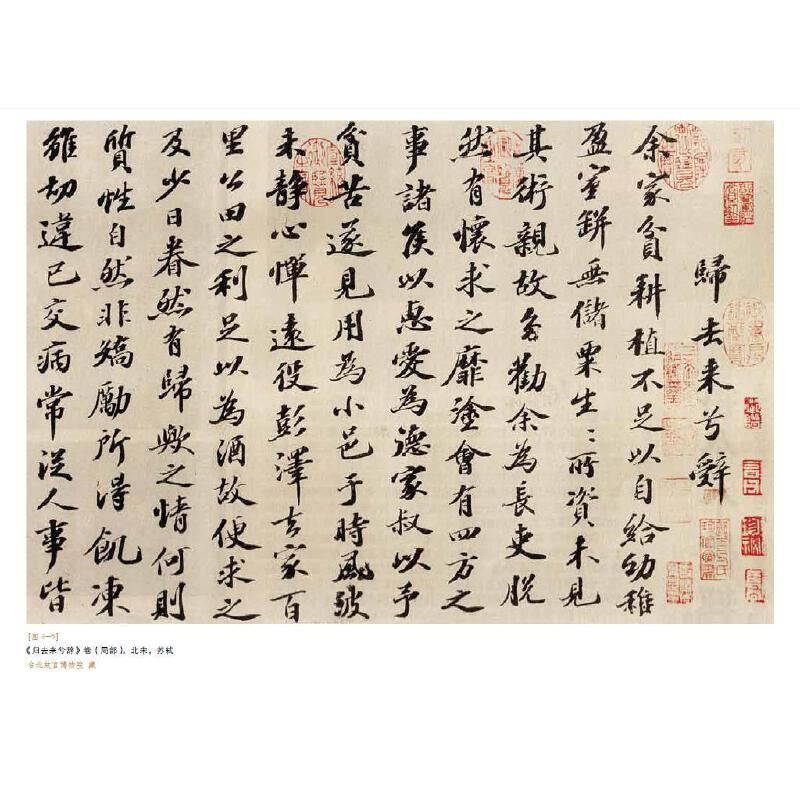 歸去来兮辭
余家貧耕植不足以自給幼稚
盈室缾無儲粟生〻所資未見
其術親故多勸余為長吏脱
然有懷求之靡塗會有四方之
事諸侯以惠愛為德家叔以予
貧苦遂見用為小邑于時風波
未靜心憚遠役彭澤去家百
里公田之利足以為酒故便求之
及少日眷然有歸歟之情何則
質性自然非矯勵所得飢凍
雖切違己交病常從人事皆
《归去来兮辞》卷（局部），北宋，苏轼
台北故宫博物院 藏